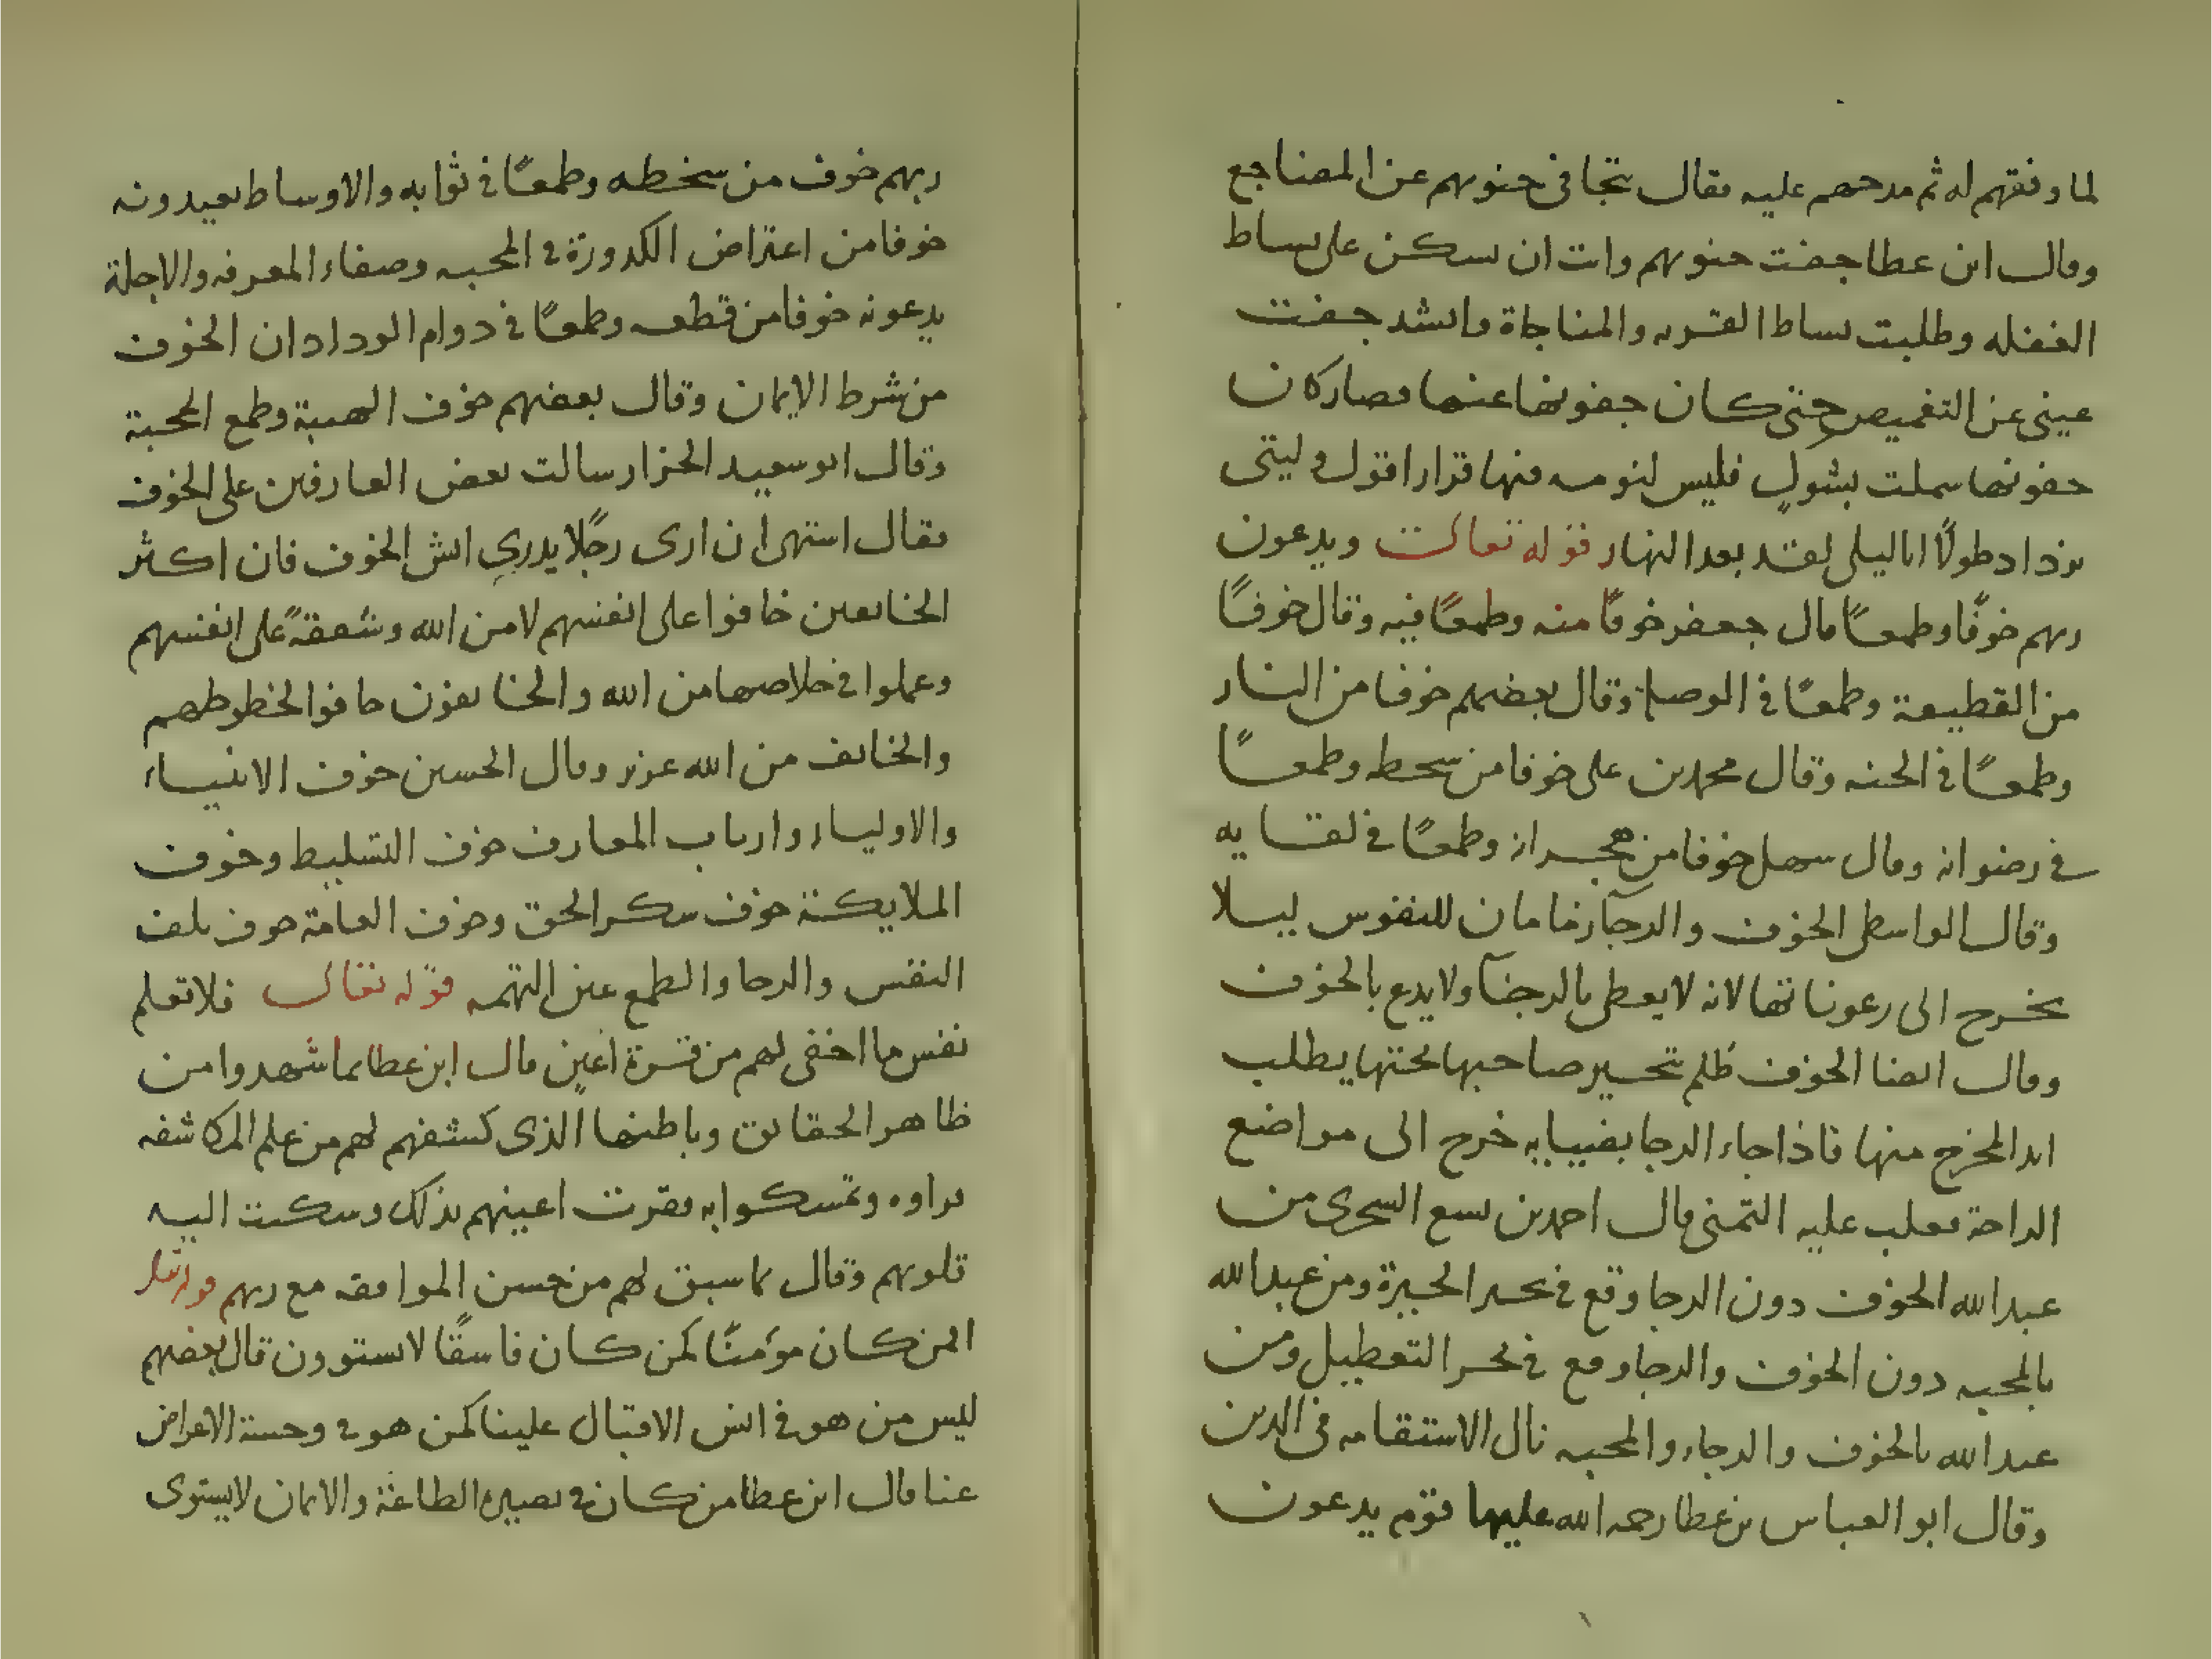 لما وفقهم له ثم مدحهم عليه فقال تتجافى جنوبهم عن المضاجع
وقال ابن عطا جفت جنوبهم وابت ان تسكن على بساط
الغفله وطلبت بساط القربه والمناجاة وانشد جفت
عينى عن التغميض حتى كان جفونها عنها قصار كان
جفونها سملت بشوك فليس لنومه فيها قرار اقول وليلتى
تزداد طولًا اما لليلى لقد بعد النهار قوله تعالى ويدعون
ربهم خوفًا وطمعًا قال جعفر خوفًا منه وطمعًا فيه وقال خوفًا
من القطيعة وطمعًا فى الوصلة وقال بعضهم خوفا من النار
وطمعًا فى الجنه وقال محمد بن على خوفا من سخطه وطمعًا
فى رضوانه وقال سهل خوفا من هجرانه وطمعًا فى لقايه
وقال الواسطى الخوف والرجآ زمامان للنفوس ليلا
يخرج الى رعوناتها لانه لا يعطى بالرجآ ولا يدع بالخوف
وقال ايضا الخوف ظلم تحير صاحبها تحتها يطلب
ابدا المخرج منها فاذا جاء الرجا بضيايه خرج الى مواضع
الراحة فغلب عليه التمنى قال احمد بن السجزى من
عبد الله الخوف دون الرجا وقع فى بحر الحيرة ومن عبد الله
بالمحبه دون الخوف والرجا وقع فى بحر التعطيل ومن
عبد الله بالخوف والرجاء والمحبه نال الاستقامه فى الدين
وقال ابو العباس بن عطا رحمه الله عليها قوم يدعون
ربهم خوف من سخطه وطمعًا فى ثوابه والاوساط يعبدونه
خوفا من اعتراض الكدورة فى المحبه وصفاء المعرفه والاجلة
يدعونه خوفا من قطعه وطمعًا فى دوام الوداد ان الخوف
من شرط الايمان وقال بعضهم خوف الهيبة وطمع المحبة
وقال ابو سعيد الخزار سالت بعض العارفين على الخوف
فقال اشتهى ان ارى رجلًا يدرى ايش الخوف فان اكثر
الخايفين خافوا على انفسهم لا من الله وشفقةً على انفسهم
وعملوا فى خلاصها من الله والخايفون خافوا لحظوظهم
والخايف من الله عزيز وقال الحسين خوف الانبياء
والاولياء وارباب المعارف خوف التسليط وخوف
الملايكة خوف مكر الحق وخوف العامة خوف تلف
النفس والرجا والطمع عين التهمه قوله تعالى فلا تعلم
نفس ما اخفى لهم من قرة اعين قال ابن عطا بما شهدوا من
ظاهر الحقايق وباطنها الذى كشفهم لهم من علم المكاشفه
فراوه وتمسكوا به فقرت اعينهم بذلك وسكنت اليه
قلوبهم وقال بما سبق لهم من حسن الموافقه مع ربهم قوله تعالى
افمن كان مؤمنًا كمن كان فاسقًا لا يستوون قال بعضهم
ليس من هو فى انس الاقبال علينا كمن هو فى وحشة الاعراض
عنا قال ابن عطا من كان فى بصيرة الطاعة والايمان لا يستوى